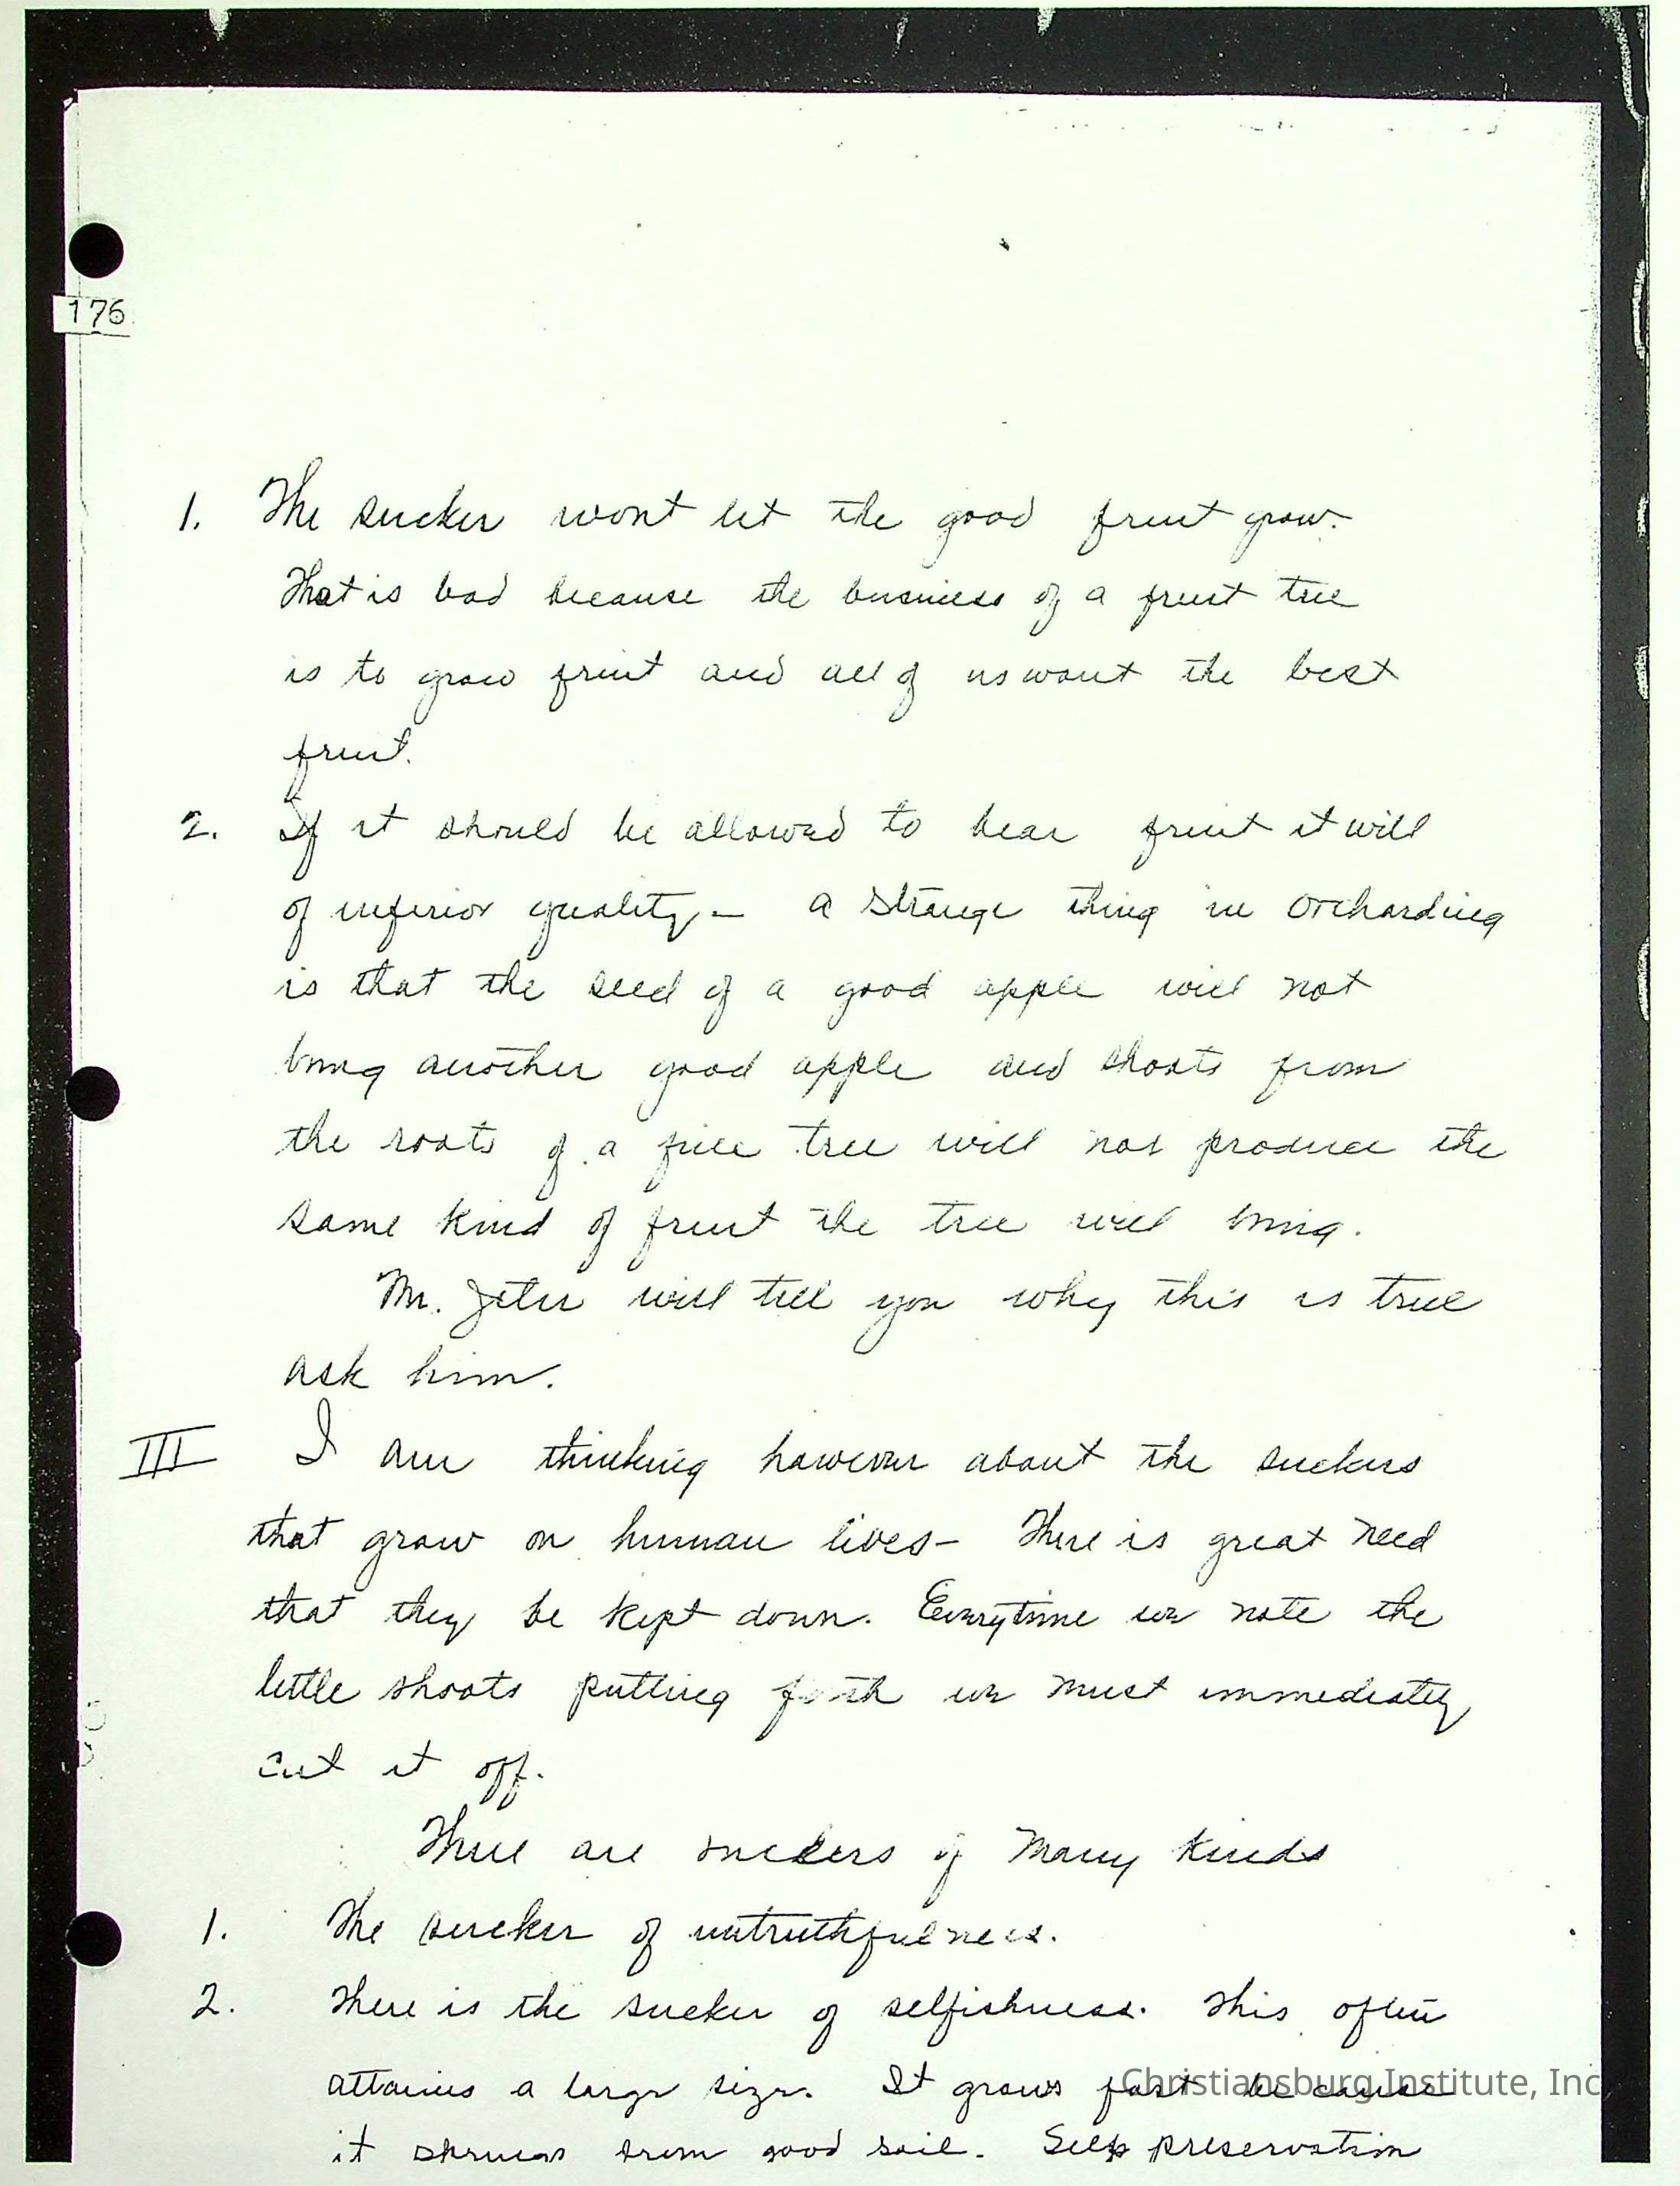 176
1. The sucker wont let the good fruit grow.
That is bad because the business of a fruit tree
is to grow fruit and all of us want the best
fruit.
2. If it should be allowed to bear fruit it will
of inferior quality - a strange thing in orcharding
is that the seed of a good apple will not
bring another good apple and shoots from
the roots of a fine tree will not produce the
same kind of fruit the tree will bring.
Mr. Jeter will tell you why this is true
ask him.
III I am thinking however about the suckers
that grow on human lives - There is great need
that they be kept down. Everytime we note the
little shoots putting forth we must immediately
cut it off.
There are suckers of many kinds
1. The sucker of untruthfulness.
2. There is the sucker of selfishness. This often
attains a large size. It grows fast because
it springs from good soil. Self preservation
Christiansburg Institute, Inc.